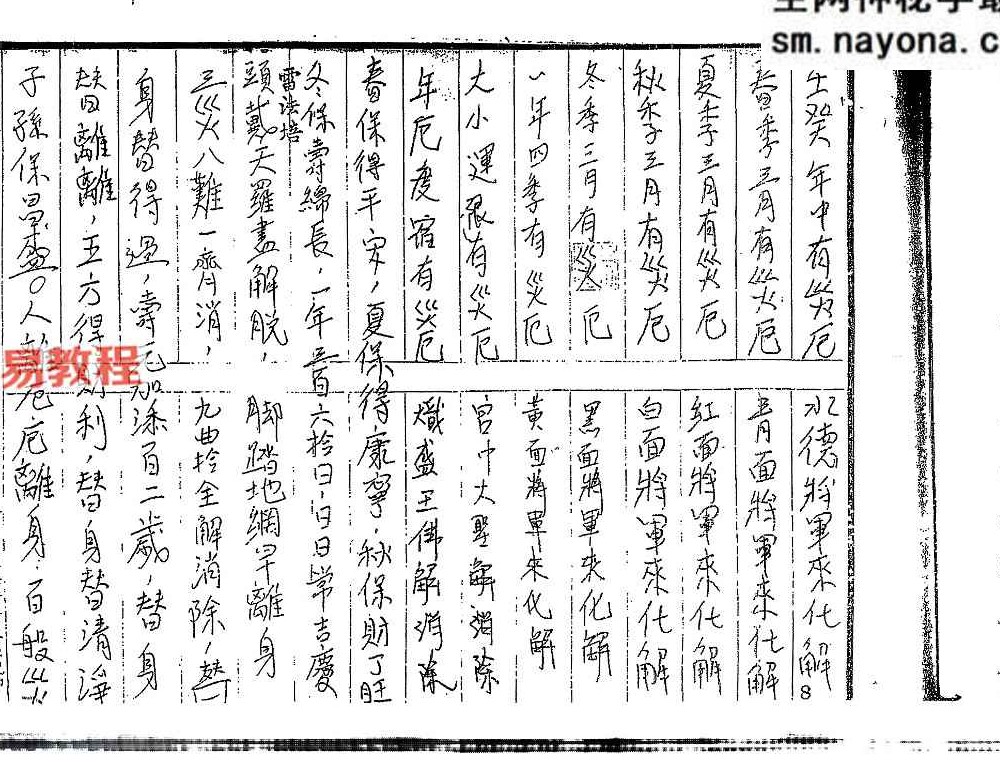 sm.nayona.c
壬癸年中有災厄 水德將軍來化解
春季三月有災厄 青面將軍來化解
夏季三月有災厄 紅面將軍來化解
秋季三月有災厄 白面將軍來化解
冬季三月有災厄 黑面將軍來化解
一年四季有災厄 黃面將軍來化解
大小運限有災厄 宮中大聖解消除
年厄度宿有災厄 熾盛王佛解消除
春保得平安,夏保得康寧,秋保財丁旺
冬保壽綿長,一年叁百六拾日,日日常吉慶
雷法培
頭戴天羅盡解脫,脚踏地網早離身
三災八難一齊消,九曲拎全解消除,替
身替得過,壽元加添百二歲,替身
替離離,五方得財利,替身替清淨
子孫保昌盛。人厄厄離身.百般災
易教程
8